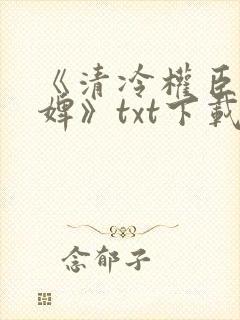 《清冷權臣
婢》txt下載
念郁子